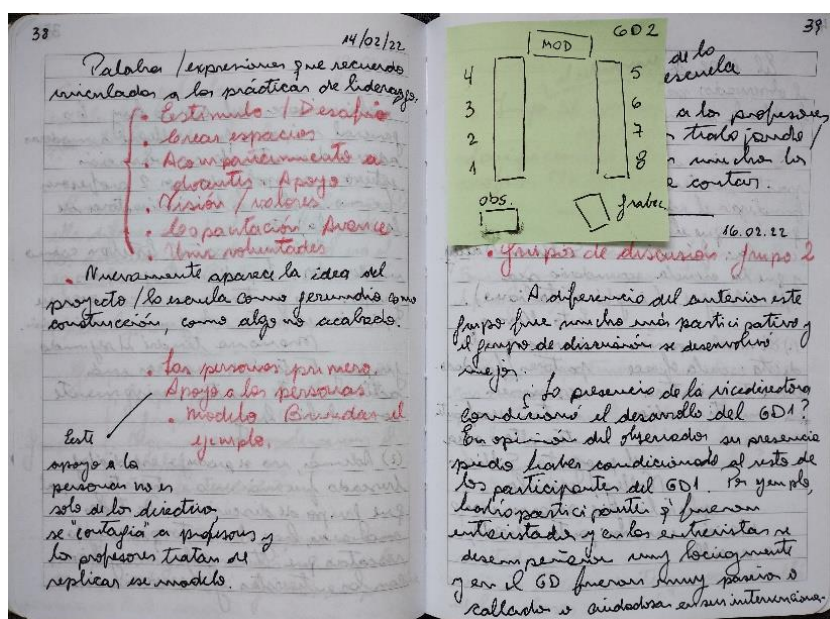 38
14/02/22
Palabras / expresiones que recuerdo
vinculadas a las prácticas de liderazgo:
• Estímulo / Desafío
• Crear espacios
• Acompañamiento a
docentes Apoyo
• Visión / valores
• Capacitación - Avance
• Unir voluntades
• Nuevamente aparece la idea del
proyecto / la escuela como gerundio como
construcción, como algo no acabado.
• Las personas primero.
Apoyo a las personas
• Modelo Brindar el
ejemplo.
Este
apoyo a la
personas no es
solo de los directivos
se "contagia" a profesores y
los profesores tratan de
replicar ese modelo.
39
GD2
MOD
4
3
2
1
5
6
7
8
obs.
grabac.
de la
escuela
a los profesores
trabajando /
muchos los
contar.
16.02.22
• Grupos de discusión: grupo 2
A diferencia del anterior este
grupo fue mucho más participativo y
el grupo de discusión se desenvolvió
mejor.
¿La presencia de la vicedirectora
condicionó el desarrollo del GD1?
En opinión del observador su presencia
pudo haber condicionado al resto de
los participantes del GD1. Por ejemplo,
había participantes q' fueron
entrevistados y en las entrevistas se
desempeñaron muy locuazmente
y en el GD fueron muy pasivos o
callados o cuidadosos en sus intervenciones.